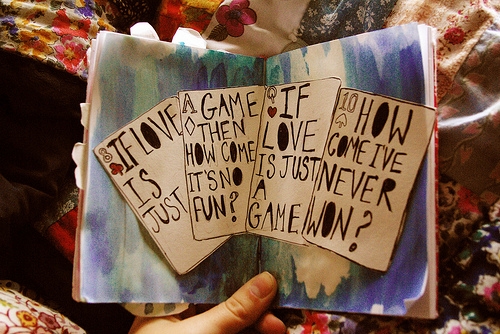 IF LOVE
IS
JUST
A
A GAME
THEN
HOW COME
IT'S NO
FUN?
Q
IF
LOVE
IS JUST
A
GAME,
10
HOW
COME I'VE
NEVER
WON?